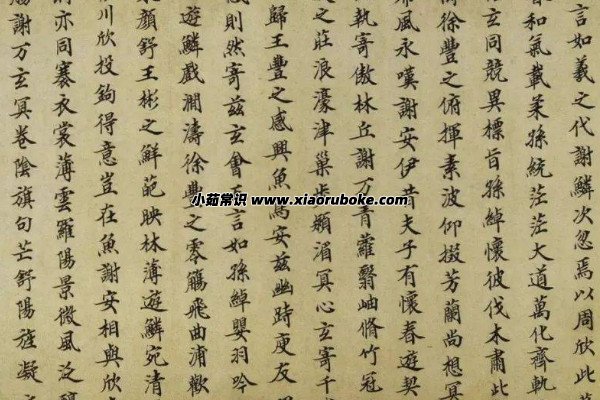 言如羲之代謝鱗次忽焉以周欣此
和氣載柔孫統茫茫大道萬化齊軌
玄同競異標旨孫綽懷彼伐木肅此
徐豐之俯揮素波仰掇芳蘭尚想冥
風永嘆謝安伊昔夫子有懷春遊契
執寄傲林丘謝万青蘿翳岫脩竹冠
之莊浪濠津巢步潁湄冥心玄寄千
歸王豐之感興魚鳥安茲幽峙庾友
則然寄茲玄會言如孫綽嬰羽吟
遊鱗戲澗濤徐豐之零觴飛曲浦歡
顏舒王彬之鮮葩映林薄遊鱗宛清
川欣投鈎得意豈在魚謝安相與欣
亦同褰衣裳薄雲羅陽景微風泛
謝万玄冥卷陰旗句芒舒陽旌凝
小茹常识 www.xiaoruboke.com